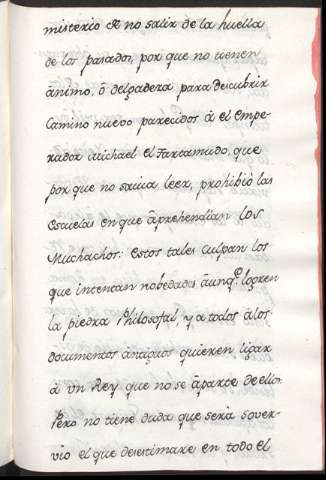 misterio de no salir de la huella
de los pasados, por que no tienen
ànimo, ô delgadeza para descubrir
Camino nuevo parecidos à el Empe-
rador Michael el Tartamudo, que
por que no savia leer, prohibiò las
Escuelas en que àprehendian los
Muchachos: Estos tales culpan los
que intentan nobedades àunq.e logren
la piedra Philosofal, y a todos àlos
documentos antiguos quieren ligar
à vn Rey que no se àparte de ellos
Pero no tiene duda que serà sover-
vio el que desestimare en todo el